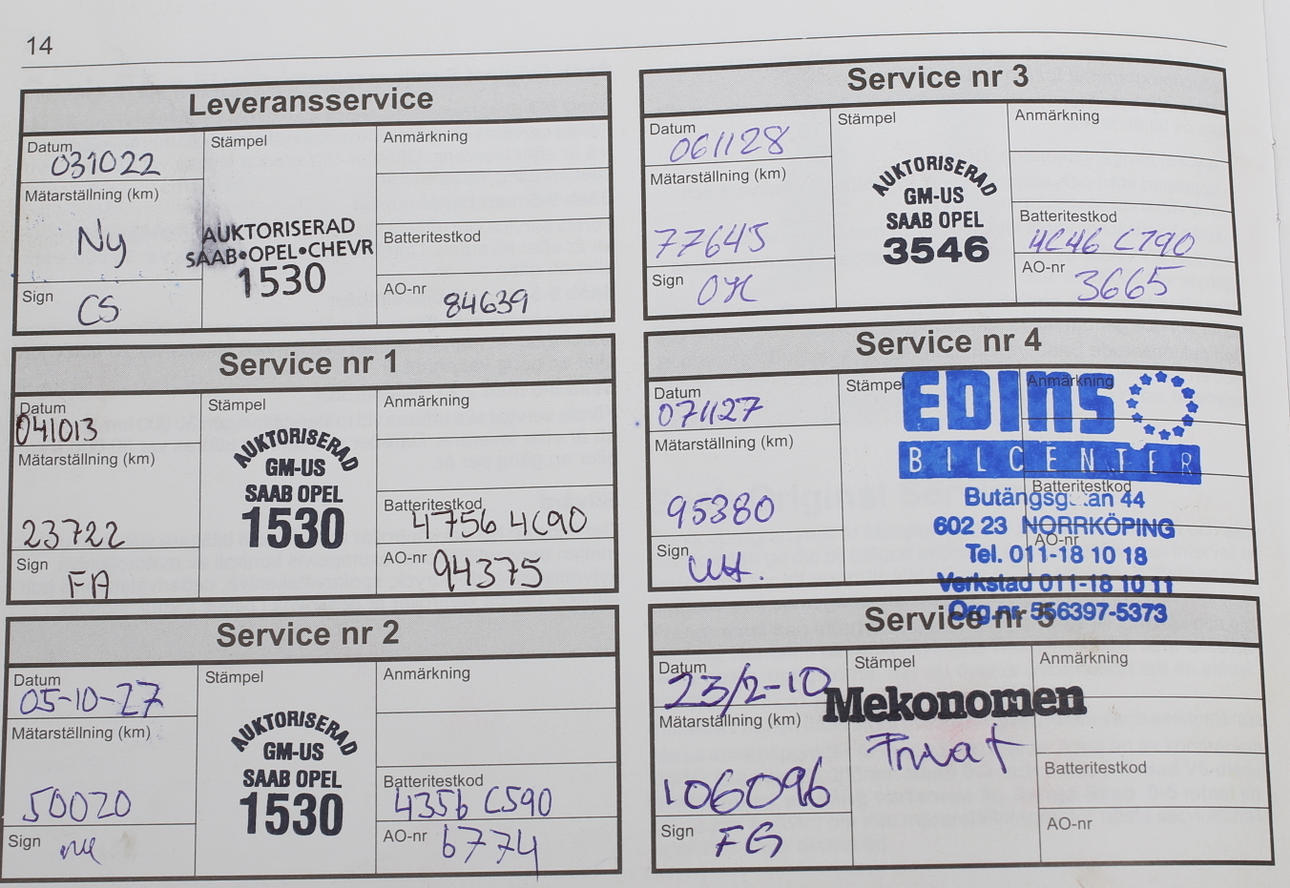 14
Leveransservice
Datum
031022
Mätarställning (km)
Ny
Sign
CS
Stämpel
AUKTORISERAD
SAAB•OPEL•CHEVR
1530
Anmärkning
Batteritestkod
AO-nr
84639
Service nr 1
Datum
041013
Mätarställning (km)
23722
Sign
FA
Stämpel
AUKTORISERAD
GM-US
SAAB OPEL
1530
Anmärkning
Batteritestkod
4756 4C90
AO-nr
94375
Service nr 2
Datum
05-10-27
Mätarställning (km)
50020
Sign
Stämpel
AUKTORISERAD
GM-US
SAAB OPEL
1530
Anmärkning
Batteritestkod
4356 C590
AO-nr
6774
Service nr 3
Datum
061128
Mätarställning (km)
77645
Sign
Stämpel
AUKTORISERAD
GM-US
SAAB OPEL
3546
Anmärkning
Batteritestkod
4C46 C790
AO-nr
3665
Service nr 4
Datum
071127
Mätarställning (km)
95380
Sign
Stämpel
EDINS
BILCENTER
44
602 23 NORRKÖPING
Tel. 011-18 10 18
Verkstad 011-18 10 11
Org.nr 556397-5373
Anmärkning
Batteritestkod
AO-nr
Service nr 5
Datum
23/2-10
Mätarställning (km)
106096
Sign
FG
Stämpel
Mekonomen
Privat
Anmärkning
Batteritestkod
AO-nr